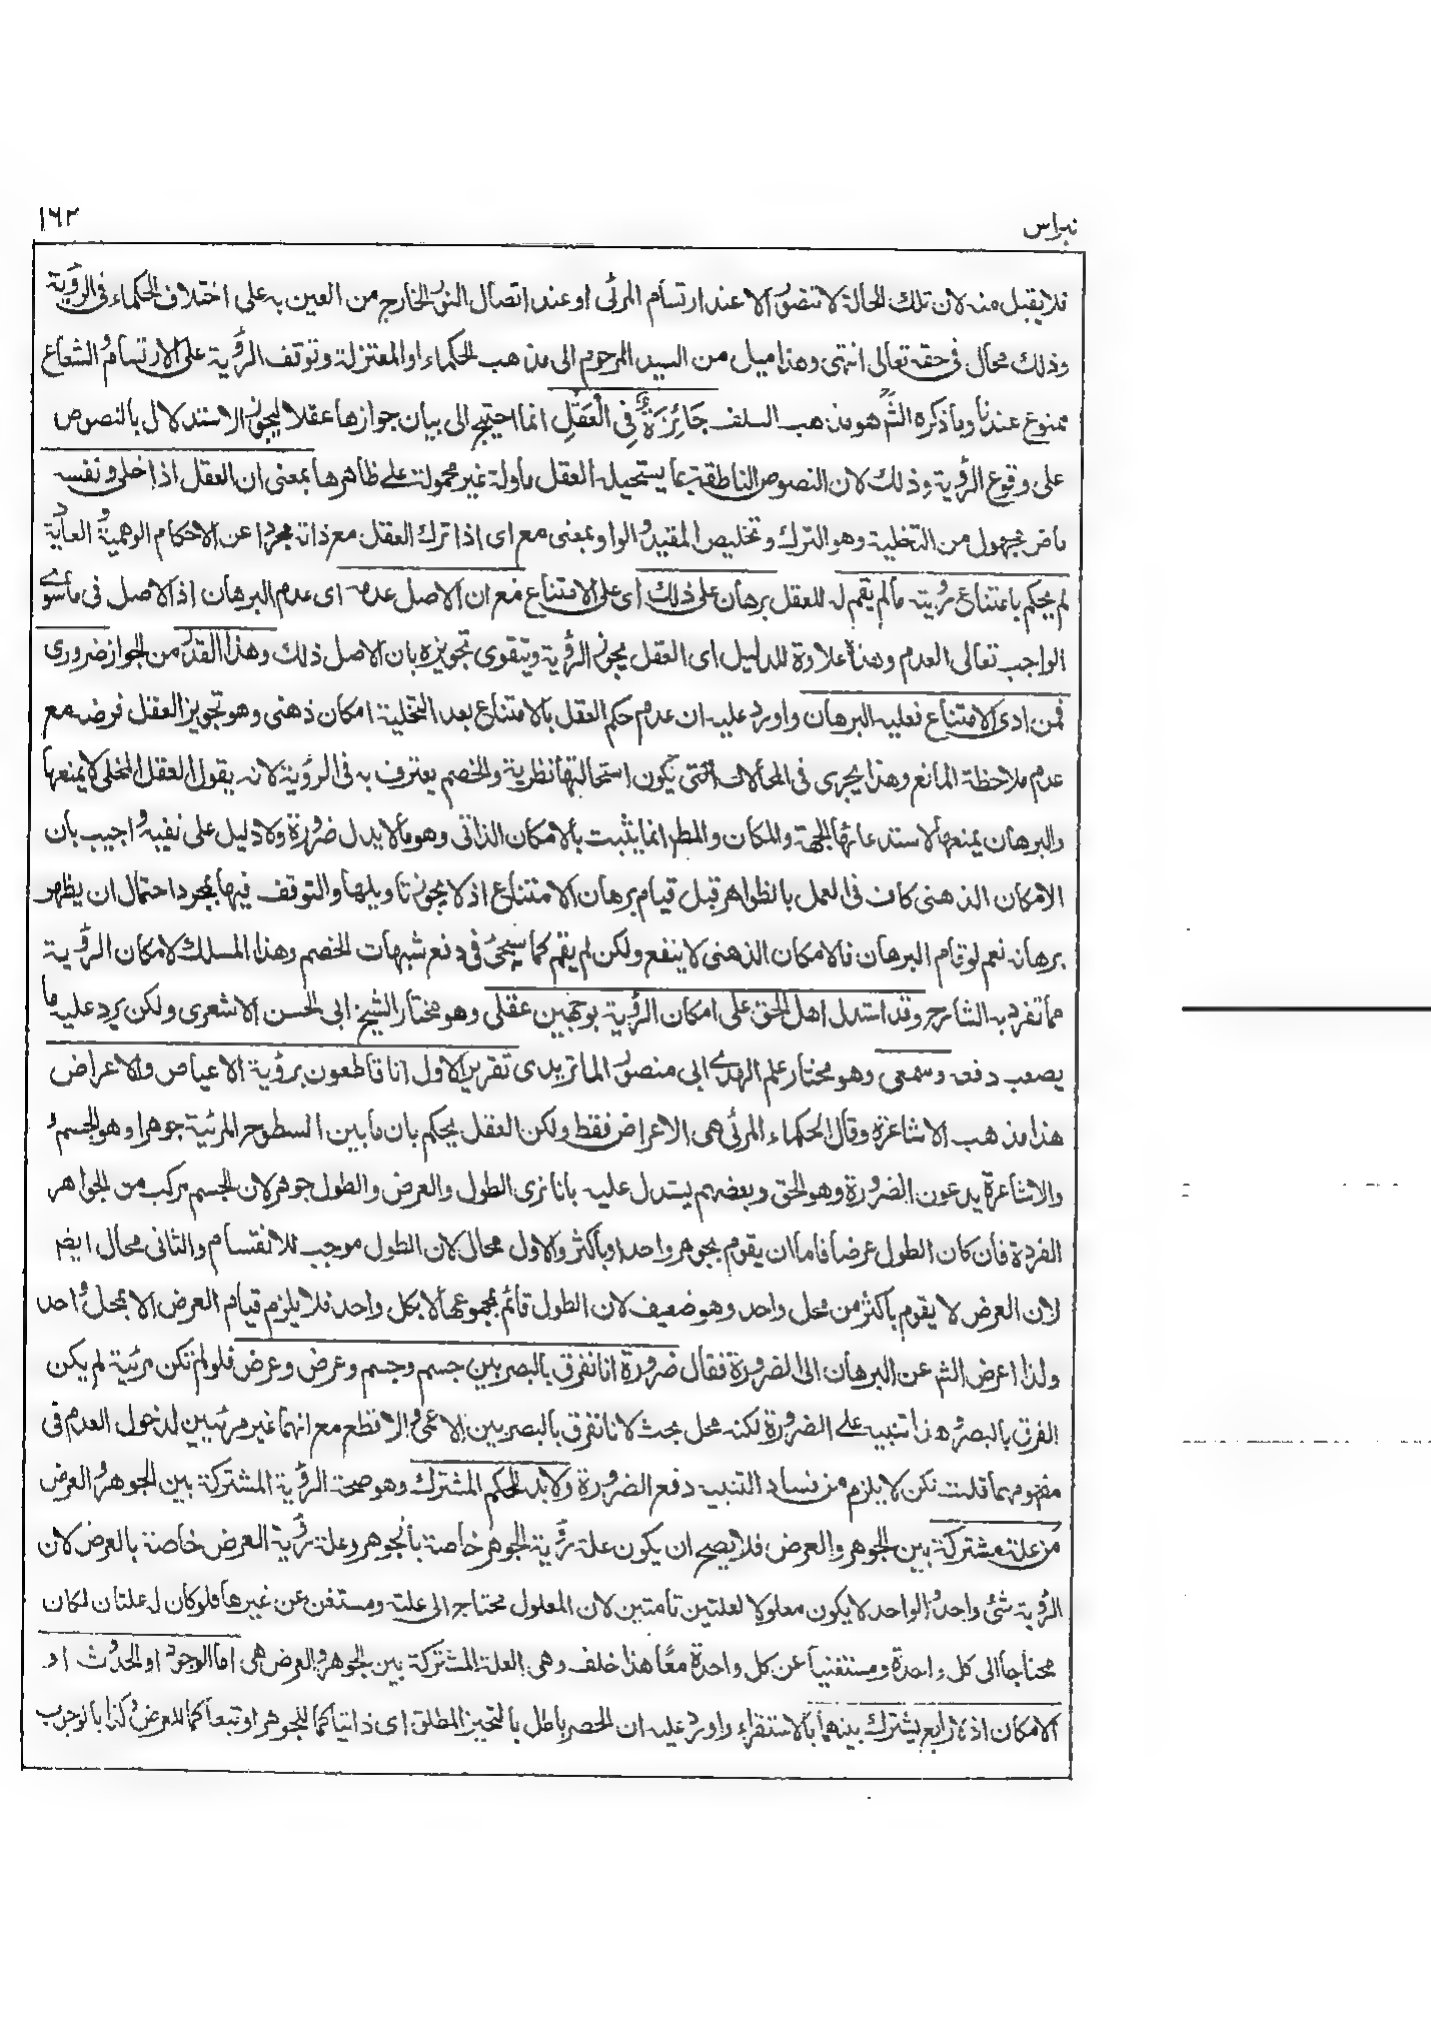 نبراس
۱۶۲
فلا يقبل منه لان تلك الحالة لا تتصور الا عند ارتسام المرئى او عند اتصال النور الخارج من العين به على اختلاف الحكماء فى الرؤية
وذلك محال فى حقه تعالى انتهى وهذا ميل من السيد المرحوم الى مذهب الحكماء او المعتزلة وتوقف الرؤية على الارتسام والشعاع
ممنوع عندنا وما ذكره الشرح هو مذهب السلف جَائِزَةٌ فِى الْعَقْلِ انما احتيج الى بيان جوازها عقلا ليجوز الاستدلال بالنصوص
على وقوع الرؤية وذلك لان النصوص الناطقة بما يستحيله العقل ماولة غير محمولة على ظاهرها بمعنى ان العقل اذا خلى ونفسه
ماض مجهول من التخلية وهو الترك وتخليص المقيد والواو بمعنى مع اى اذا ترك العقل مع ذاته مجردا عن الاحكام الوهمية والعادية
لم يحكم بامتناع رؤيته مالم يقم له للعقل برهان على ذلك اى على الامتناع مع ان الاصل عدمه اى عدم البرهان اذ الاصل فى ما سوى
الواجب تعالى العدم وهذا علاوة للدليل اى العقل يجوز الرؤية ويتقوى تجويزه بان الاصل ذلك وهذا القدر من الجواز ضرورى
فمن ادعى الامتناع فعليه البرهان واورد عليه ان عدم حكم العقل بالامتناع بعد التخلية امكان ذهنى وهو تجويز العقل فرضه مع
عدم ملاحظة المانع وهذا يجرى فى المحالات التى يكون استحالتها نظرية والخصم يعترف به فى الرؤية لانه يقول العقل المخلى لا يمنعها
والبرهان يمنعها لاستدعائها الجهة والمكان والمطر انما يثبت بالامكان الذاتى وهو ما لا يدل ضرورة ولا دليل على نفيه واجيب بان
الامكان الذهنى كاف فى العمل بالظواهر قبل قيام برهان الامتناع اذ لا يجوز تاويلها والتوقف فيها بمجرد احتمال ان يظهر
برهانه نعم لو قام البرهان فالامكان الذهنى لا ينفع ولكن لم يقم كما سيجئ فى دفع شبهات الخصم وهذا المسلك لامكان الرؤية
مما تفرد به الشارح وقد استدل اهل الحق على امكان الرؤية بوجهين عقلى وهو مختار الشيخ ابى الحسن الاشعرى ولكن يرد عليه ما
يصعب دفعه وسمعى وهو مختار علم الهدى ابى منصور الماتريدى تقرير الاول انا قاطعون برؤية الاعيان والاعراض
هذا مذهب الاشاعرة وقال الحكماء المرئى هى الاعراض فقط ولكن العقل يحكم بان ما بين السطوح المرئية جوهرا وهو الجسم و
والاشاعرة يدعون الضرورة وهو الحق وبعضهم يستدل عليه بانا نرى الطول والعرض والطول جوهر لان الجسم مركب من الجواهر
الفردة فان كان الطول عرضا فاما ان يقوم بجوهر واحد او باكثر والاول محال لان الطول موجب للانقسام والثانى محال ايضر
لان العرض لا يقوم باكثر من محل واحد وهو ضعيف لان الطول قائم بمجموعها لا بكل واحد فلا يلزم قيام العرض الا بمحل واحد
ولذا اعرض الشر عن البرهان الى الضرورة فقال ضرورة انا نفرق بالبصر بين جسم وجسم وعرض وعرض فلو لم تكن مرئية لم يكن
الفرق بالبصر وهذا تنبيه على الضرورة لكنه محل بحث لانا نفرق بالبصر بين الاعمى والاقطع مع انهما غير مرئيين لدخول العدم فى
مفهومهما قلت لكن لا يلزم من فساد التنبيه دفع الضرورة ولابد للحكم المشترك وهو صحة الرؤية المشتركة بين الجوهر والعرض
من علة مشتركة بين الجوهر والعرض فلا يصح ان يكون علة رؤية الجوهر خاصة بالجوهر وعلة رؤية العرض خاصة بالعرض لان
الرؤية شئ واحد والواحد لا يكون معلولا لعلتين تامتين لان المعلول محتاج الى علته ومستغن عن غيرها فلو كان له علتان لكان
محتاجا الى كل واحدة ومستغنيا عن كل واحدة معا هذا خلف وهى العلة المشتركة بين الجوهر والعرض هى اما الوجود او الحدوث او
الامكان اذ لا رابع يشترك بينهما بالاستقراء واورد عليه ان الحصر باطل بالتحيز المطلق اى ذاتيا كما للجوهر او تبعا كما للعرض وكذا بالوجوب